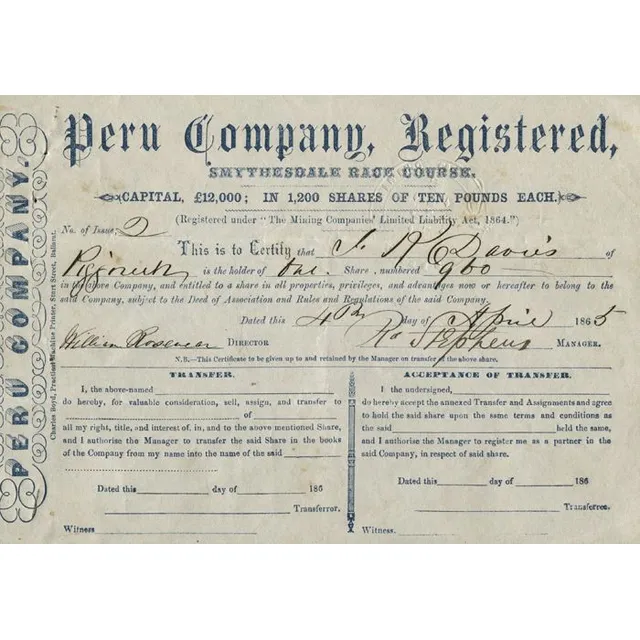 PERU COMPANY.
Charles Boyd, Practical Machine Printer, Sturt Street, Ballarat.
Peru Company, Registered,
SMYTHESDALE RACE COURSE.
CAPITAL, £12,000; IN 1,200 SHARES OF TEN POUNDS EACH.
(Registered under "The Mining Companies' Limited Liability Act, 1864.")
No. of Issue, 2
This is to Certify that Davies of
is the holder of One Share, numbered 960
in the above Company, and entitled to a share in all properties, privileges, and advantages now or hereafter to belong to the
said Company, subject to the Deed of Association and Rules and Regulations of the said Company.
Dated this 4th day of April 1865
William Rosewear DIRECTOR Stephens MANAGER.
N.B.—This Certificate to be given up to and retained by the Manager on transfer of the above share.
TRANSFER.
I, the above-named
do hereby, for valuable consideration, sell, assign, and transfer to
of
all my right, title, and interest of, in, and to the above mentioned Share,
and I authorise the Manager to transfer the said Share in the books
of the Company from my name into the name of the said
Dated this day of 186
Transferror.
Witness
ACCEPTANCE OF TRANSFER.
I, the undersigned,
do hereby accept the annexed Transfer and Assignments and agree
to hold the said share upon the same terms and conditions as
the said held the same,
and I authorise the Manager to register me as a partner in the
said Company, in respect of said share.
Dated this day of 186
Transferree.
Witness.